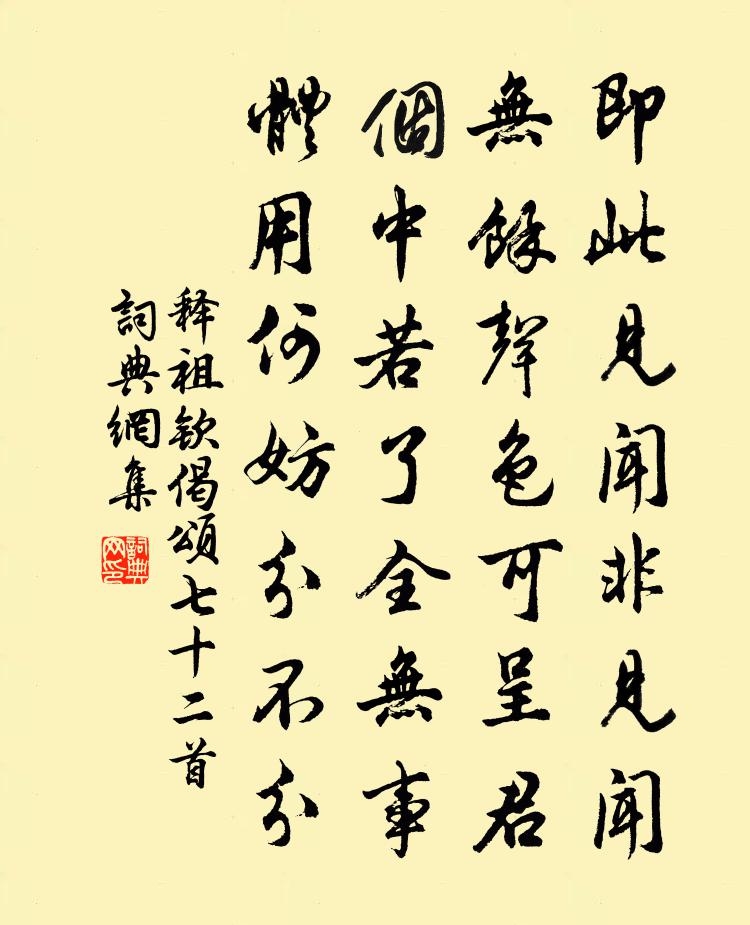 即此見聞非見聞
無餘聲色可呈君
個中若了全無事
體用何妨分不分
释祖钦偈頌七十二首
詞典網集
詞典
网印